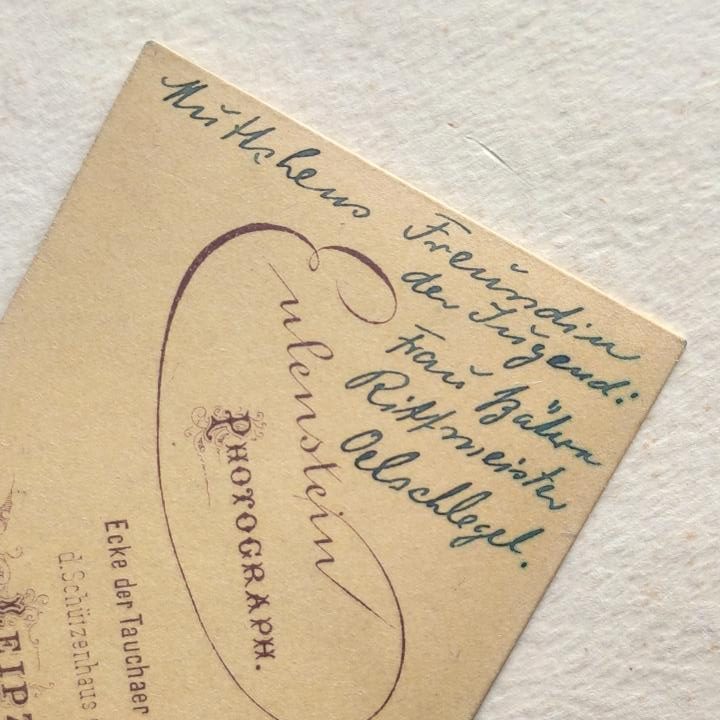 Muttchens Freundin
der Jugend:
Frau Bähr
Rittmeister
Oelschlegel.
Eulenstein
PHOTOGRAPH.
Ecke der Tauchaer
d.Schützenhaus
LEIPZ